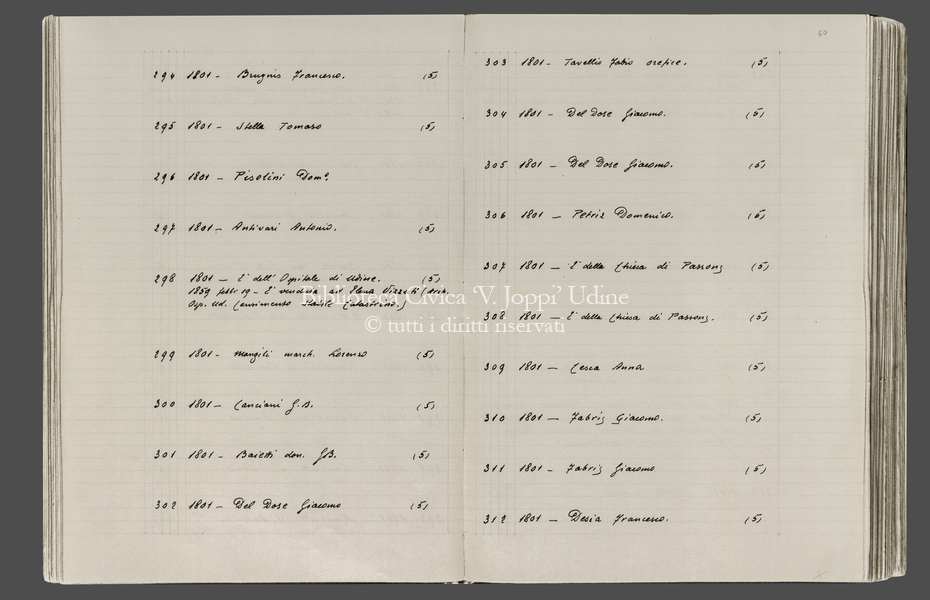 294 1801 - Brugnis Francesco. (5)
295 1801 - Stella Tomaso (5)
296 1801 - Pisolini Dom.º
297 1801 - Antivari Antonio. (5)
298 1801 - E' dell' Ospitale di Udine. (5)
1859 febbr. 19 - E' venduta ad Elena
Osp. Ud. Censimento Stabile
299 1801 - Mangili march. Lorenzo (5)
300 1801 - Canciani G.B. (5)
301 1801 - Baietti don. GB. (5)
302 1801 - Del Dose Giacomo (5)
50
303 1801 - Tavellio Fabio orefice. (5)
304 1801 - Del Dose Giacomo. (5)
305 1801 - Del Dose Giacomo. (5)
306 1801 - Petris Domenico. (5)
307 1801 - E' della Chiesa di Passons (5)
308 1801 - E' della Chiesa di Passons. (5)
309 1801 - Cesca Anna (5)
310 1801 - Fabris Giacomo. (5)
311 1801 - Fabris Giacomo (5)
312 1801 - Desia Francesco. (5)
Biblioteca Civica 'V. Joppi' Udine
© tutti i diritti riservati